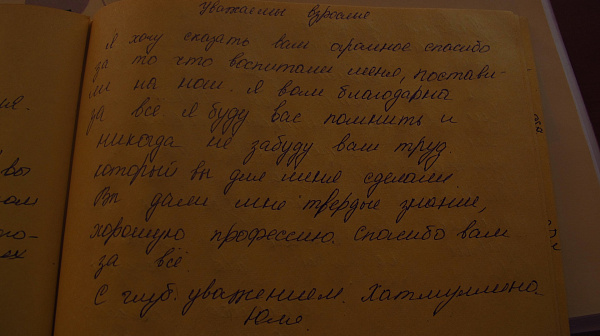 Уважаемы взрослие
Я хочу сказать вам огромное спасибо
за то что воспитали меня, постави-
ли на ноги. Я вам благодарна
за всё я буду вас помнить и
никогда не забуду ваш труд
который вы для меня сделали
Вы дали мне твердые знание,
хорошую профессию. Спасибо вам
за всё.
С глуб. уважением.
Юля.
ия.
вы